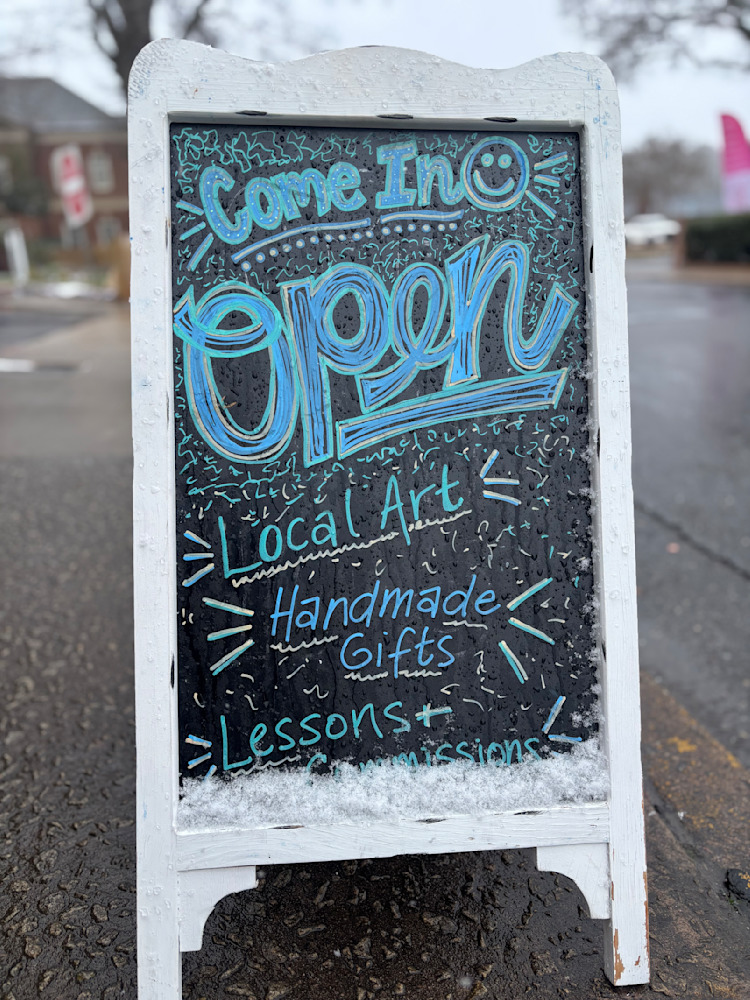 Come In
Open
Local Art
Handmade
Gifts
Lessons +
Commissions